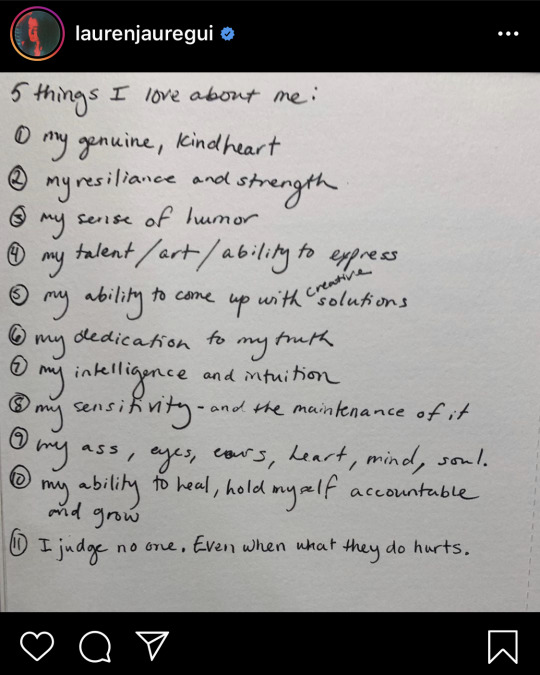 laurenjauregui
5 things I love about me:
① my genuine, kindheart
② my resiliance and strength
③ my sense of humor
④ my talent/art/ability to express
⑤ my ability to come up with creative solutions
⑥ my dedication to my truth
⑦ my intelligence and intuition
⑧ my sensitivity - and the maintenance of it
⑨ my ass, eyes, ears, heart, mind, soul.
⑩ my ability to heal, hold myself accountable
and grow
⑪ I judge no one. Even when what they do hurts.